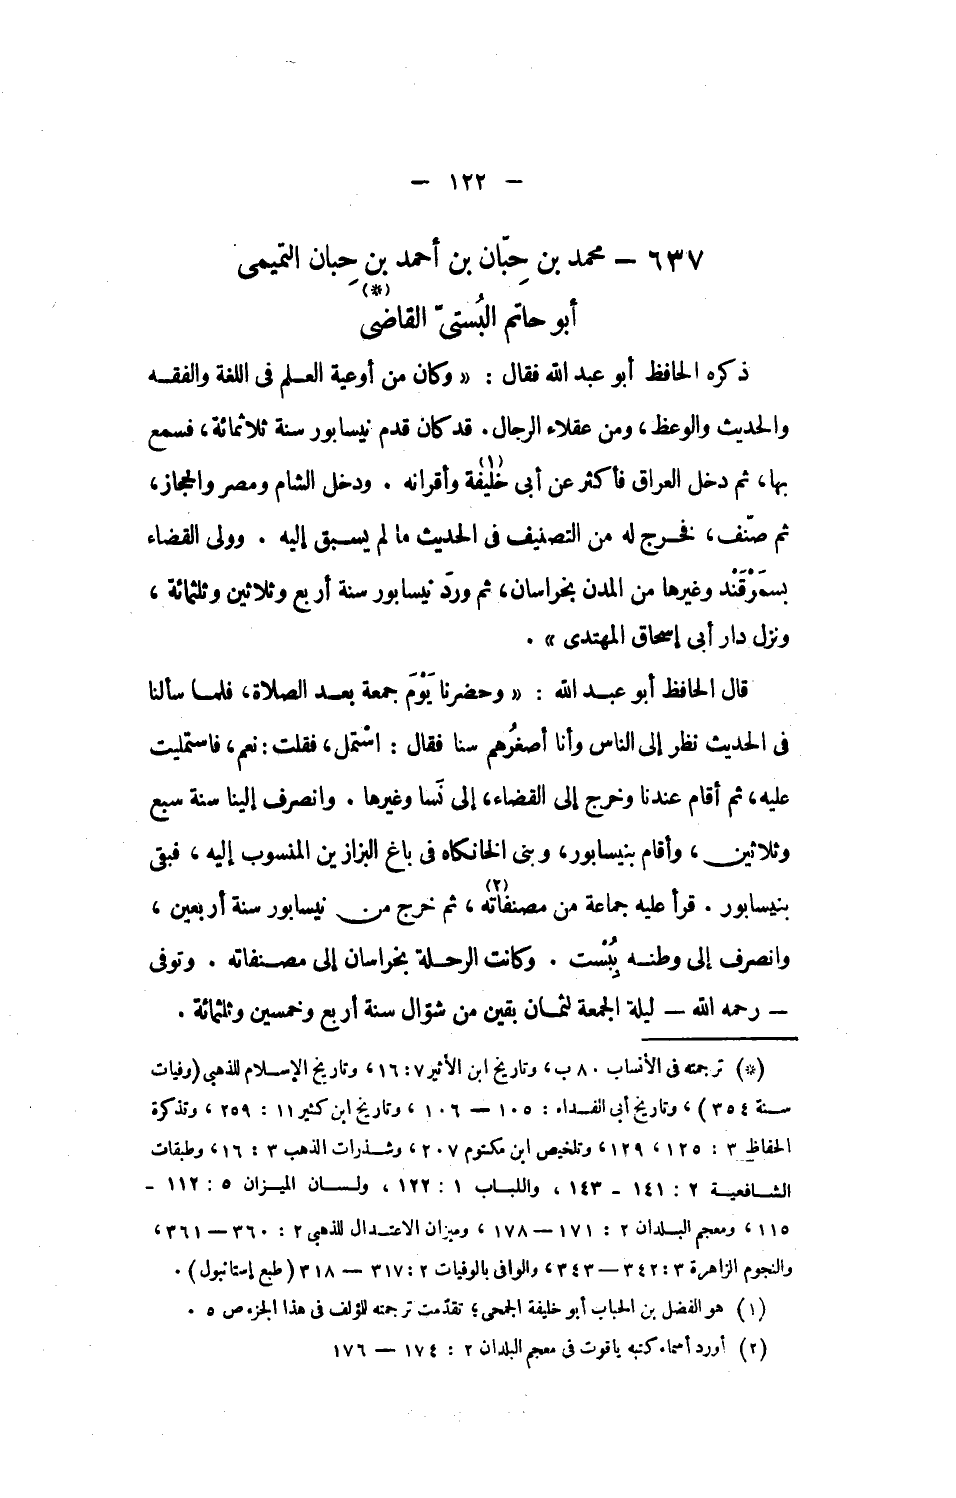 — ١٢٢ —
٦٣٧ — محمد بن حِبّان بن أحمد بن حِبان التميمى
أبو حاتم البُستىّ القاضى (*)
ذكره الحافظ أبو عبد الله فقال : « وكان من أوعية العلم فى اللغة والفقه
والحديث والوعظ، ومن عقلاء الرجال. قد كان قدم نيسابور سنة ثلاثمائة، فسمع
بها، ثم دخل العراق فأكثر عن أبى خليفة (١) وأقرانه . ودخل الشام ومصر والحجاز،
ثم صنّف، فخرج له من التصنيف فى الحديث ما لم يسبق إليه . وولى القضاء
بسَمَرْقَنْد وغيرها من المدن بخراسان، ثم ورد نيسابور سنة أربع وثلاثين وثلثمائة ،
ونزل دار أبى إسحاق المهتدى » .
قال الحافظ أبو عبد الله : « وحضرنا يَوْمَ جمعة بعد الصلاة، فلما سألنا
فى الحديث نظر إلى الناس وأنا أصغرُهم سنا فقال : اسْتمل، فقلت : نعم، فاستمليت
عليه، ثم أقام عندنا وخرج إلى القضاء، إلى نَسا وغيرها . وانصرف إلينا سنة سبع
وثلاثين ، وأقام بنيسابور، وبنى الخانكاه فى باغ البزازين المنسوب إليه ، فبقى
بنيسابور . قرأ عليه جماعة من مصنفاته (٢) ، ثم خرج من نيسابور سنة أربعين ،
وانصرف إلى وطنه بِبُسْت . وكانت الرحلة بخراسان إلى مصنفاته . وتوفى
— رحمه الله — ليلة الجمعة لثمان بقين من شوّال سنة أربع وخمسين وثلثمائة .
(*) ترجمته فى الأنساب ٨٠ ب، وتاريخ ابن الأثير ٧ : ١٦ ، وتاريخ الإسلام للذهبى (وفيات
سنة ٣٥٤) ، وتاريخ أبى الفداء : ١٠٥ — ١٠٦ ، وتاريخ ابن كثير ١١ : ٢٥٩ ، وتذكرة
الحفاظ ٣ : ١٢٥ ، ١٢٩ ، وتلخيص ابن مكتوم ٢٠٧ ، وشذرات الذهب ٣ : ١٦ ، وطبقات
الشافعية ٢ : ١٤١ - ١٤٣ ، واللباب ١ : ١٢٢ ، ولسان الميزان ٥ : ١١٢ -
١١٥ ، ومعجم البلدان ٢ : ١٧١ — ١٧٨ ، وميزان الاعتدال للذهبى ٢ : ٣٦٠ — ٣٦١ ،
والنجوم الزاهرة ٣ : ٣٤٢ — ٣٤٣ ، والوافى بالوفيات ٢ : ٣١٧ — ٣١٨ (طبع إستانبول) .
(١) هو الفضل بن الحباب أبو خليفة الجمحى؛ تقدّمت ترجمته للمؤلف فى هذا الجزء ص ٥ .
(٢) أورد أسماء كتبه ياقوت فى معجم البلدان ٢ : ١٧٤ — ١٧٦